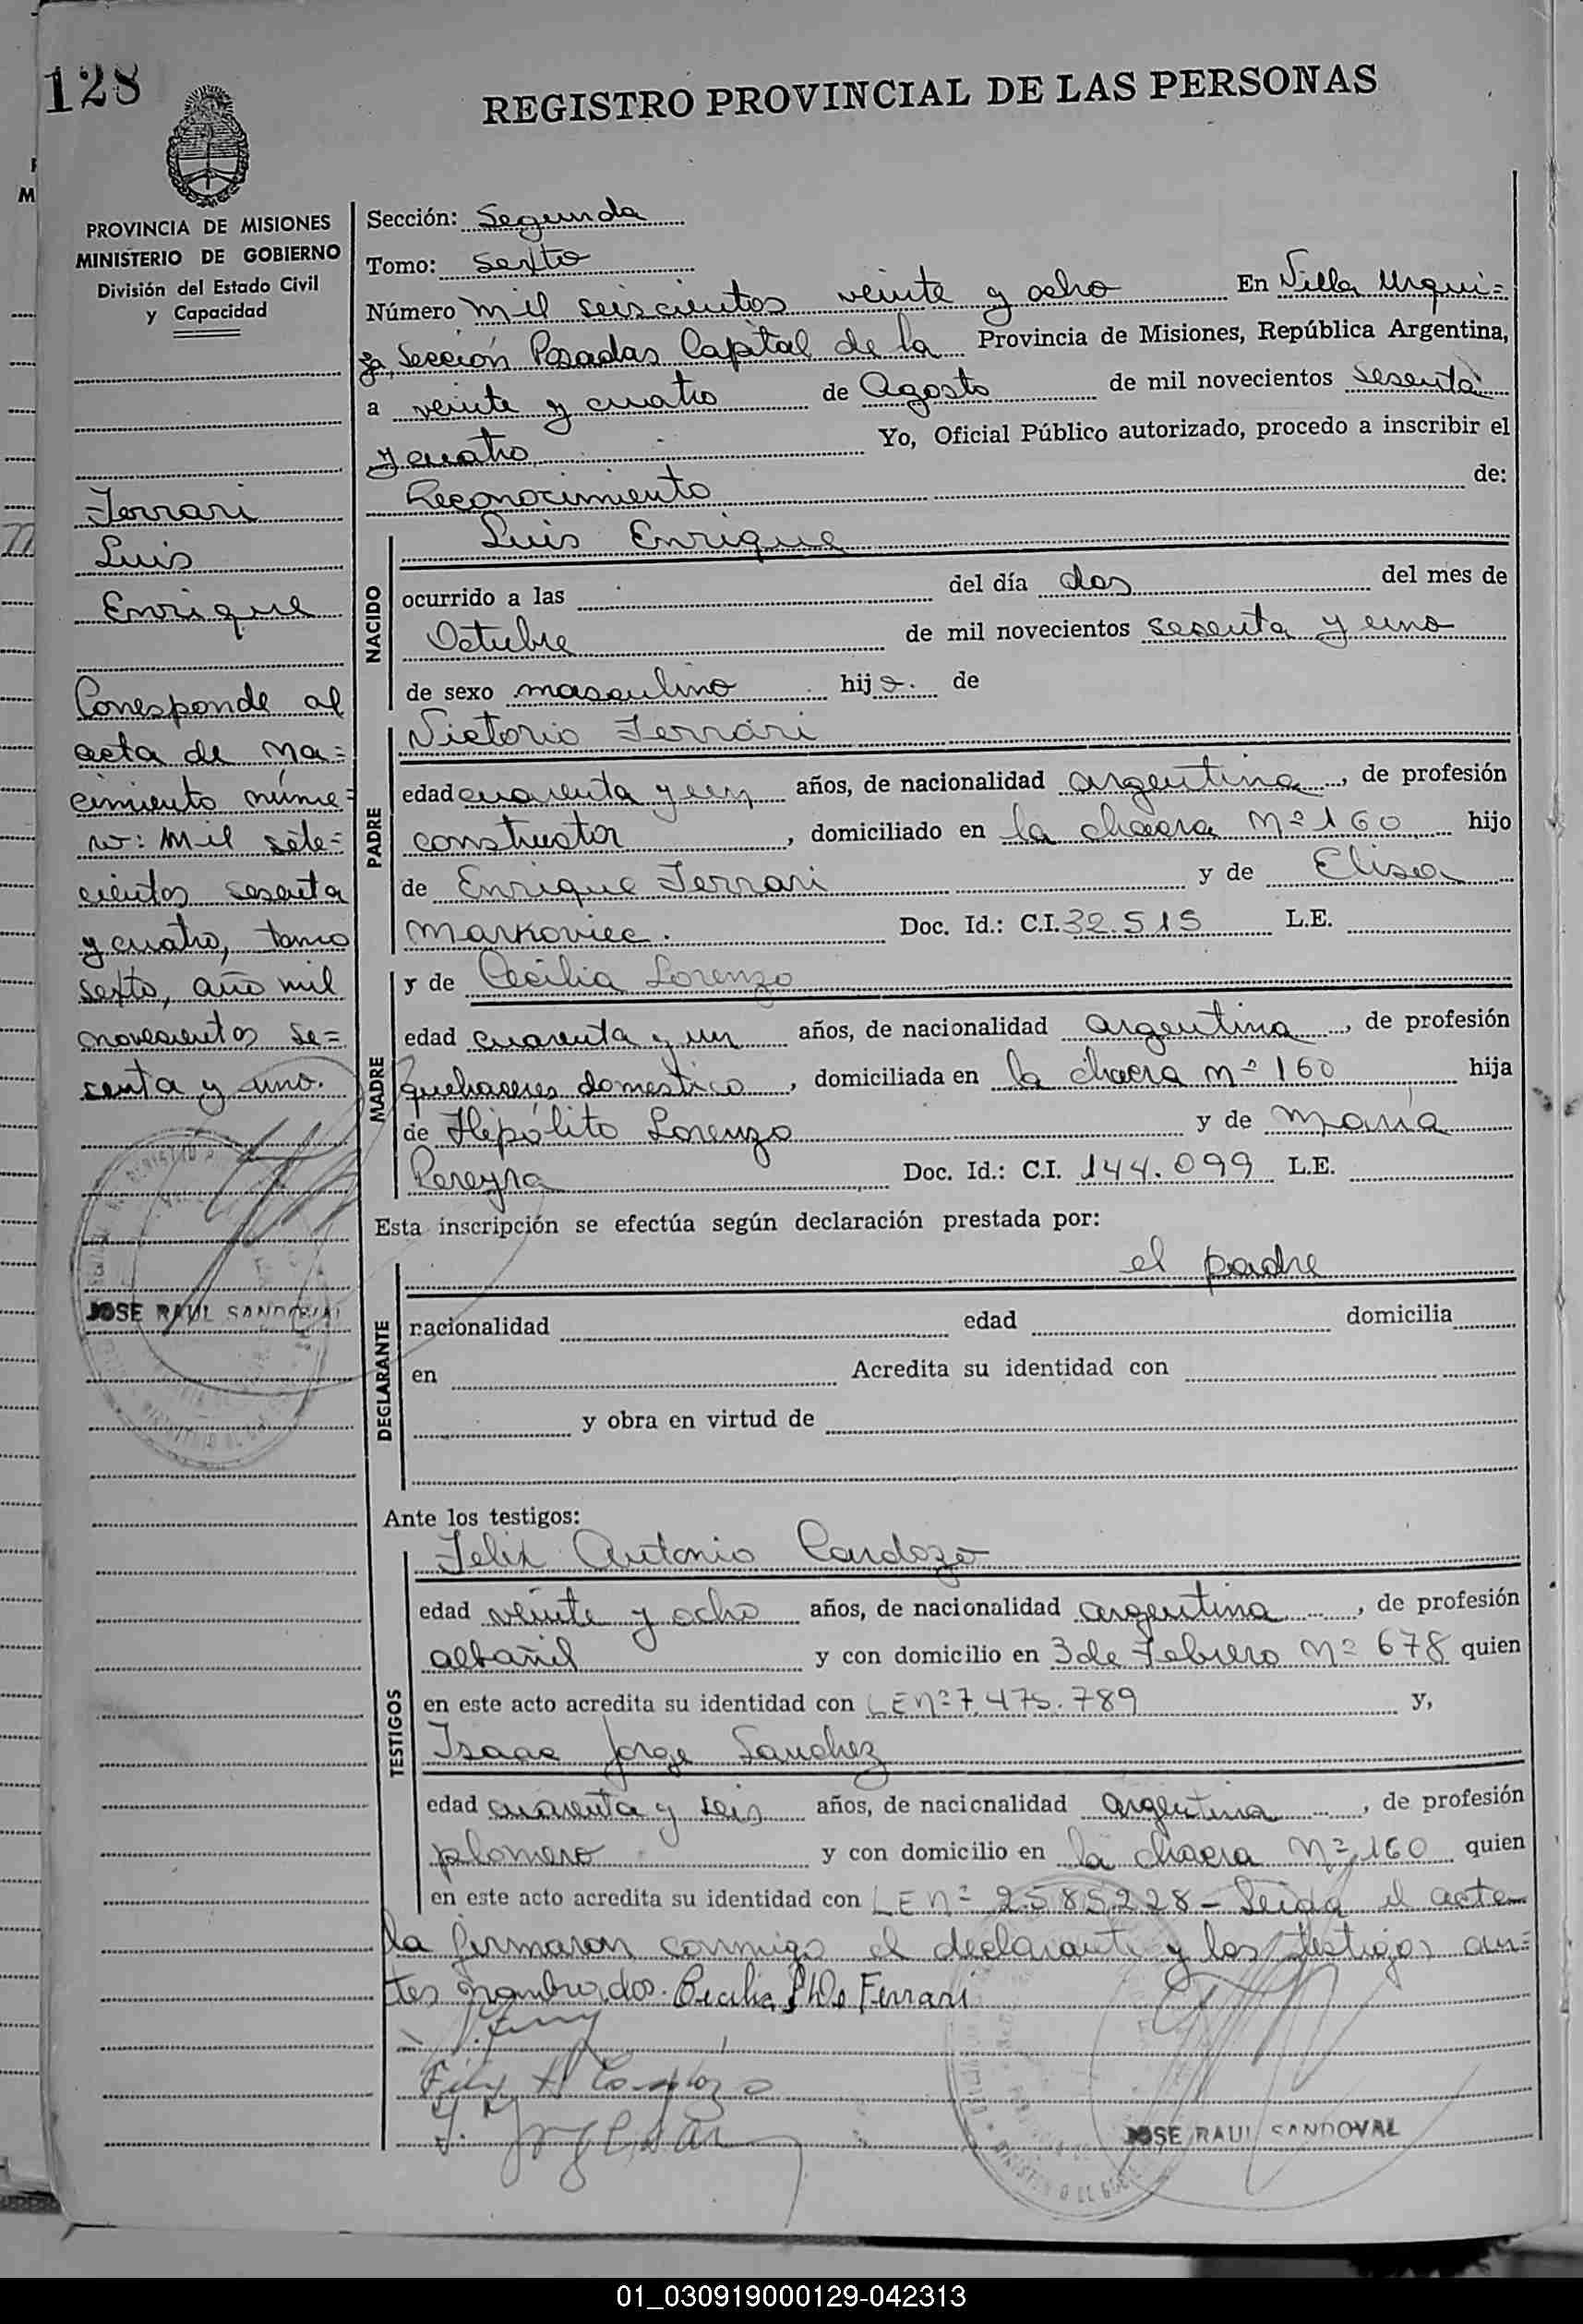 128
REGISTRO PROVINCIAL DE LAS PERSONAS
PROVINCIA DE MISIONES
MINISTERIO DE GOBIERNO
División del Estado Civil
y Capacidad
Ferrari
Luis
Enrique
Corresponde al
acta de na=
cimiento núme=
ro: mil sete=
cientos sesenta
y cuatro, tomo
sexto, año mil
novecientos se=
senta y uno.
JOSE RAUL SANDOVAL
Sección: Segunda
Tomo: Sexto
Número mil seiscientos veinte y ocho En Villa Urqui=
za, Sección Posadas Capital de la Provincia de Misiones, República Argentina,
a veinte y cuatro de Agosto de mil novecientos sesenta
y cuatro Yo, Oficial Público autorizado, procedo a inscribir el
Reconocimiento de:
NACIDO
Luis Enrique
ocurrido a las del día dos del mes de
Octubre de mil novecientos sesenta y uno
de sexo masculino hijo de
PADRE
Victorio Ferrari
edad cuarenta y un años, de nacionalidad argentina, de profesión
constructor, domiciliado en la chacra Nº 160 hijo
de Enrique Ferrari y de Elisa
Markoviec. Doc. Id.: C.I. 32.515 L.E.
MADRE
y de Cecilia Lorenzo
edad cuarenta y un años, de nacionalidad argentina, de profesión
quehaceres domestico, domiciliada en la chacra nº 160 hija
de Hipólito Lorenzo y de María
Pereyra Doc. Id.: C.I. 144.099 L.E.
Esta inscripción se efectúa según declaración prestada por:
DECLARANTE
el padre
nacionalidad edad domicilia
en Acredita su identidad con
y obra en virtud de
Ante los testigos:
TESTIGOS
Felix Antonio Cardozo
edad veinte y ocho años, de nacionalidad argentina, de profesión
albañil y con domicilio en 3 de Febrero Nº 678 quien
en este acto acredita su identidad con LE nº 7.475.789 y,
Isaac Jorge Sanchez
edad cuarenta y seis años, de nacionalidad argentina, de profesión
plomero y con domicilio en la chacra Nº 160 quien
en este acto acredita su identidad con LE nº 2585228 - Leida el acta
la firmaron conmigo el declarante y los testigos an=
tes nombrados. Cecilia L de Ferrari
JOSE RAUL SANDOVAL
01_030919000129-042313